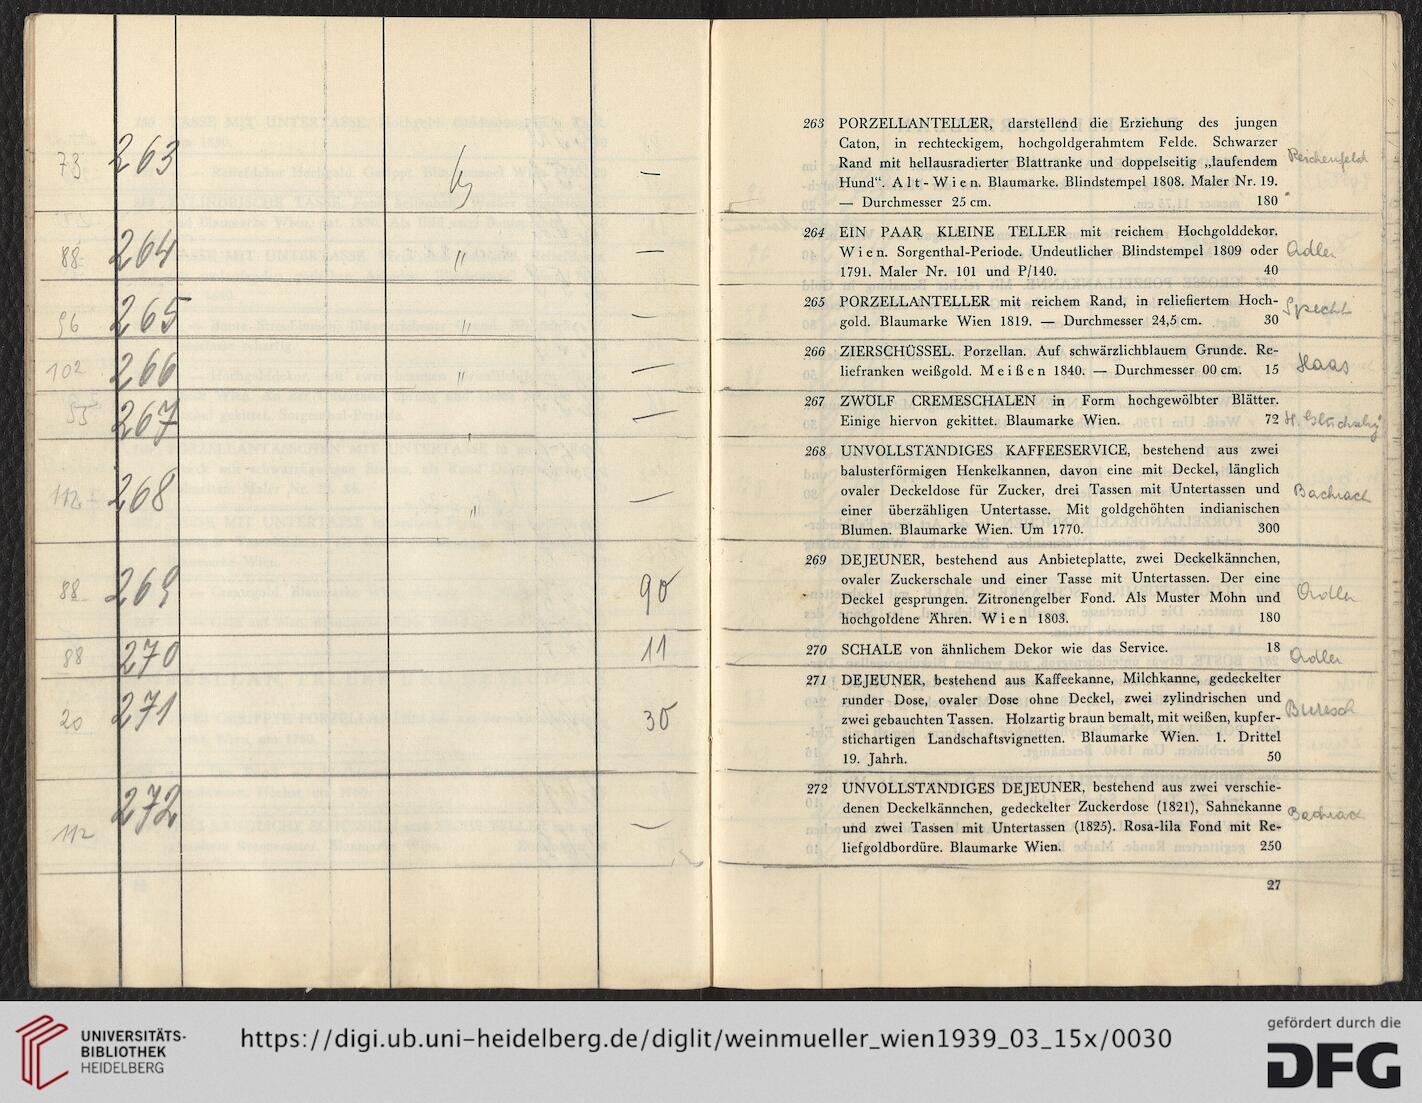 73 263 —
88 264 " —
96 265 " —
102 266 " —
55 267 " —
112 268 " —
88 269 90
88 270 11
20 271 30
112 272 —
263 PORZELLANTELLER, darstellend die Erziehung des jungen
Caton, in rechteckigem, hochgoldgerahmtem Felde. Schwarzer
Rand mit hellausradierter Blattranke und doppelseitig „laufendem
Hund“. Alt-Wien. Blaumarke. Blindstempel 1808. Maler Nr. 19.
— Durchmesser 25 cm. 180
Reichenfeld
264 EIN PAAR KLEINE TELLER mit reichem Hochgolddekor.
Wien. Sorgenthal-Periode. Undeutlicher Blindstempel 1809 oder
1791. Maler Nr. 101 und P/140. 40
Adler
265 PORZELLANTELLER mit reichem Rand, in reliefiertem Hoch-
gold. Blaumarke Wien 1819. — Durchmesser 24,5 cm. 30
Specht
266 ZIERSCHÜSSEL. Porzellan. Auf schwärzlichblauem Grunde. Re-
liefranken weißgold. Meißen 1840. — Durchmesser 00 cm. 15
Haas
267 ZWÖLF CREMESCHALEN in Form hochgewölbter Blätter.
Einige hiervon gekittet. Blaumarke Wien. 72
H.
268 UNVOLLSTÄNDIGES KAFFEESERVICE, bestehend aus zwei
balusterförmigen Henkelkannen, davon eine mit Deckel, länglich
ovaler Deckeldose für Zucker, drei Tassen mit Untertassen und
einer überzähligen Untertasse. Mit goldgehöhten indianischen
Blumen. Blaumarke Wien. Um 1770. 300
Bachrach
269 DEJEUNER, bestehend aus Anbieteplatte, zwei Deckelkännchen,
ovaler Zuckerschale und einer Tasse mit Untertassen. Der eine
Deckel gesprungen. Zitronengelber Fond. Als Muster Mohn und
hochgoldene Ähren. Wien 1803. 180
Adler
270 SCHALE von ähnlichem Dekor wie das Service. 18
Adler
271 DEJEUNER, bestehend aus Kaffeekanne, Milchkanne, gedeckelter
runder Dose, ovaler Dose ohne Deckel, zwei zylindrischen und
zwei gebauchten Tassen. Holzartig braun bemalt, mit weißen, kupfer-
stichartigen Landschaftsvignetten. Blaumarke Wien. 1. Drittel
19. Jahrh. 50
Buresch
272 UNVOLLSTÄNDIGES DEJEUNER, bestehend aus zwei verschie-
denen Deckelkännchen, gedeckelter Zuckerdose (1821), Sahnekanne
und zwei Tassen mit Untertassen (1825). Rosa-lila Fond mit Re-
liefgoldbordüre. Blaumarke Wien. 250
Bachrach
27
UNIVERSITÄTS-
BIBLIOTHEK
HEIDELBERG
https://digi.ub.uni-heidelberg.de/diglit/weinmueller_wien1939_03_15x/0030
gefördert durch die
DFG